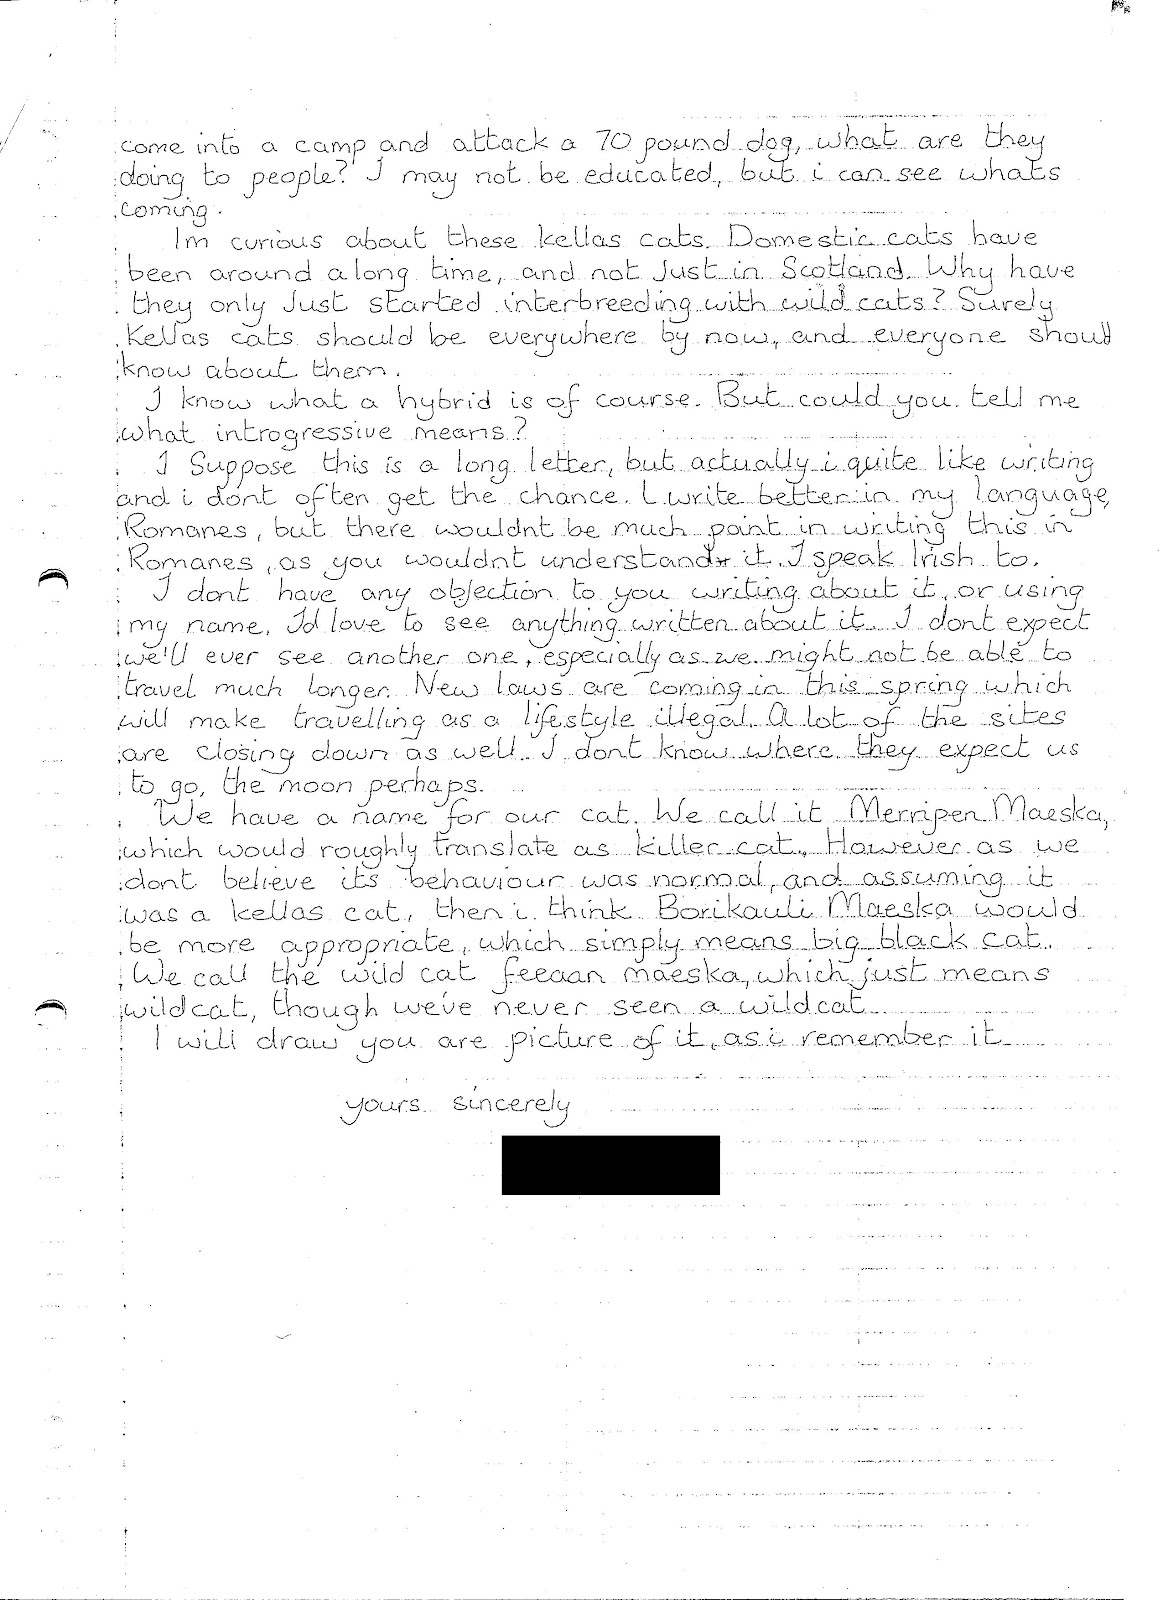 come into a camp and attack a 70 pound dog, what are they
doing to people? I may not be educated, but i can see whats
coming.
Im curious about these kellas cats. Domestic cats have
been around a long time, and not just in Scotland. Why have
they only just started interbreeding with wild cats? Surely
Kellas cats should be everywhere by now, and everyone should
know about them.
I know what a hybrid is of course. But could you tell me
what introgressive means?
I suppose this is a long letter, but actually i quite like writing
and i dont often get the chance. I write better in my language,
Romanes, but there wouldnt be much point in writing this in
Romanes, as you wouldnt understand it. I speak Irish to.
I dont have any objection to you writing about it, or using
my name. Id love to see anything written about it. I dont expect
we'll ever see another one, especially as we might not be able to
travel much longer. New laws are coming in this spring which
will make travelling as a lifestyle illegal. A lot of the sites
are closing down as well. I dont know where they expect us
to go, the moon perhaps.
We have a name for our cat. We call it Merripen Maeska,
which would roughly translate as killer cat. However as we
dont believe its behaviour was normal, and assuming it
was a kellas cat, then i think Borikauli Maeska would
be more appropriate, which simply means big black cat.
We call the wild cat feeaan maeska, which just means
wildcat, though we've never seen a wildcat.
I will draw you are picture of it, as i remember it.
yours sincerely